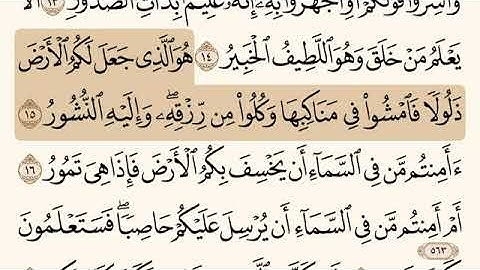 وَأَسِرُّوا۟ قَوْلَكُمْ أَوِ ٱجْهَرُوا۟ بِهِۦٓ إِنَّهُۥ عَلِيمٌۢ بِذَاتِ ٱلصُّدُورِ ١٣ أَلَا
يَعْلَمُ مَنْ خَلَقَ وَهُوَ ٱللَّطِيفُ ٱلْخَبِيرُ ١٤ هُوَ ٱلَّذِى جَعَلَ لَكُمُ ٱلْأَرْضَ
ذَلُولًا فَٱمْشُوا۟ فِى مَنَاكِبِهَا وَكُلُوا۟ مِن رِّزْقِهِۦ ۖ وَإِلَيْهِ ٱلنُّشُورُ ١٥
ءَأَمِنتُم مَّن فِى ٱلسَّمَآءِ أَن يَخْسِفَ بِكُمُ ٱلْأَرْضَ فَإِذَا هِىَ تَمُورُ ١٦
أَمْ أَمِنتُم مَّن فِى ٱلسَّمَآءِ أَن يُرْسِلَ عَلَيْكُمْ حَاصِبًا ۖ فَسَتَعْلَمُونَ
٥٦٣